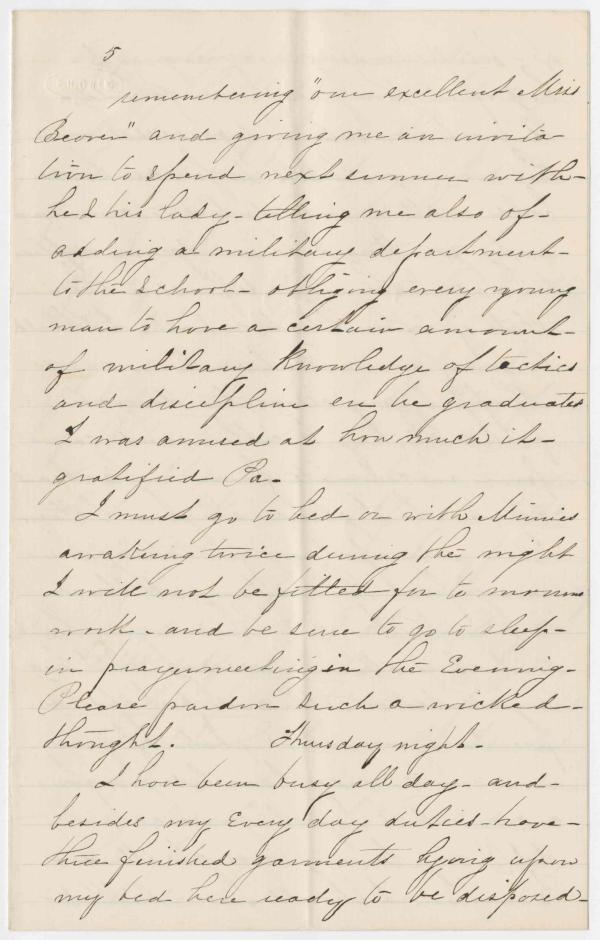 5
remembering "our excellent Miss
Beover" and giving me an invita
tion to spend next summer with-
he & his lady - telling me also of-
adding a military department-
to the School - obliging every young
man to have a certain amount-
of military knowledge of tactics
and discipline ere he graduates
I was amused at how much it-
gratified Pa-
I must go to bed or with Minnies
awaking twice during the night
I will not be fitted for to morrows
work - and be sure to go to sleep-
in prayermeeting in the Evening-
Please pardon such a wicked-
thought. Thursday night-
I have been busy all day - and-
besides my Every day duties - have-
three finished garments lying upon
my bed here ready to be disposed-